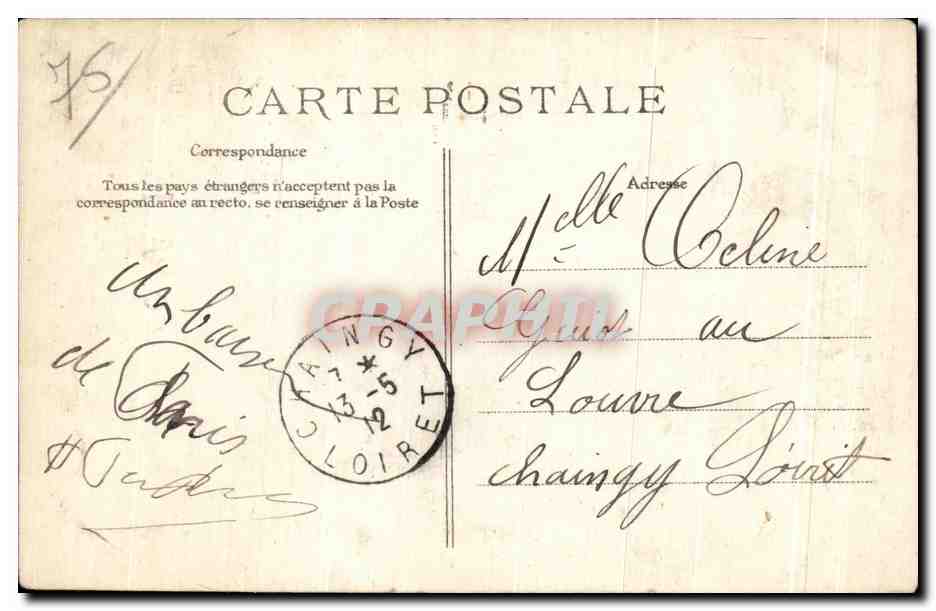 75/
CARTE POSTALE
Correspondance
Tous les pays étrangers n'acceptent pas la
correspondance au recto, se renseigner à la Poste
un baiser
de Paris
Adresse
Melle Celine
au
Louvre
chaingy Loiret
CHAINGY
7 *
13 -5
12
LOIRET
CPAPHIL